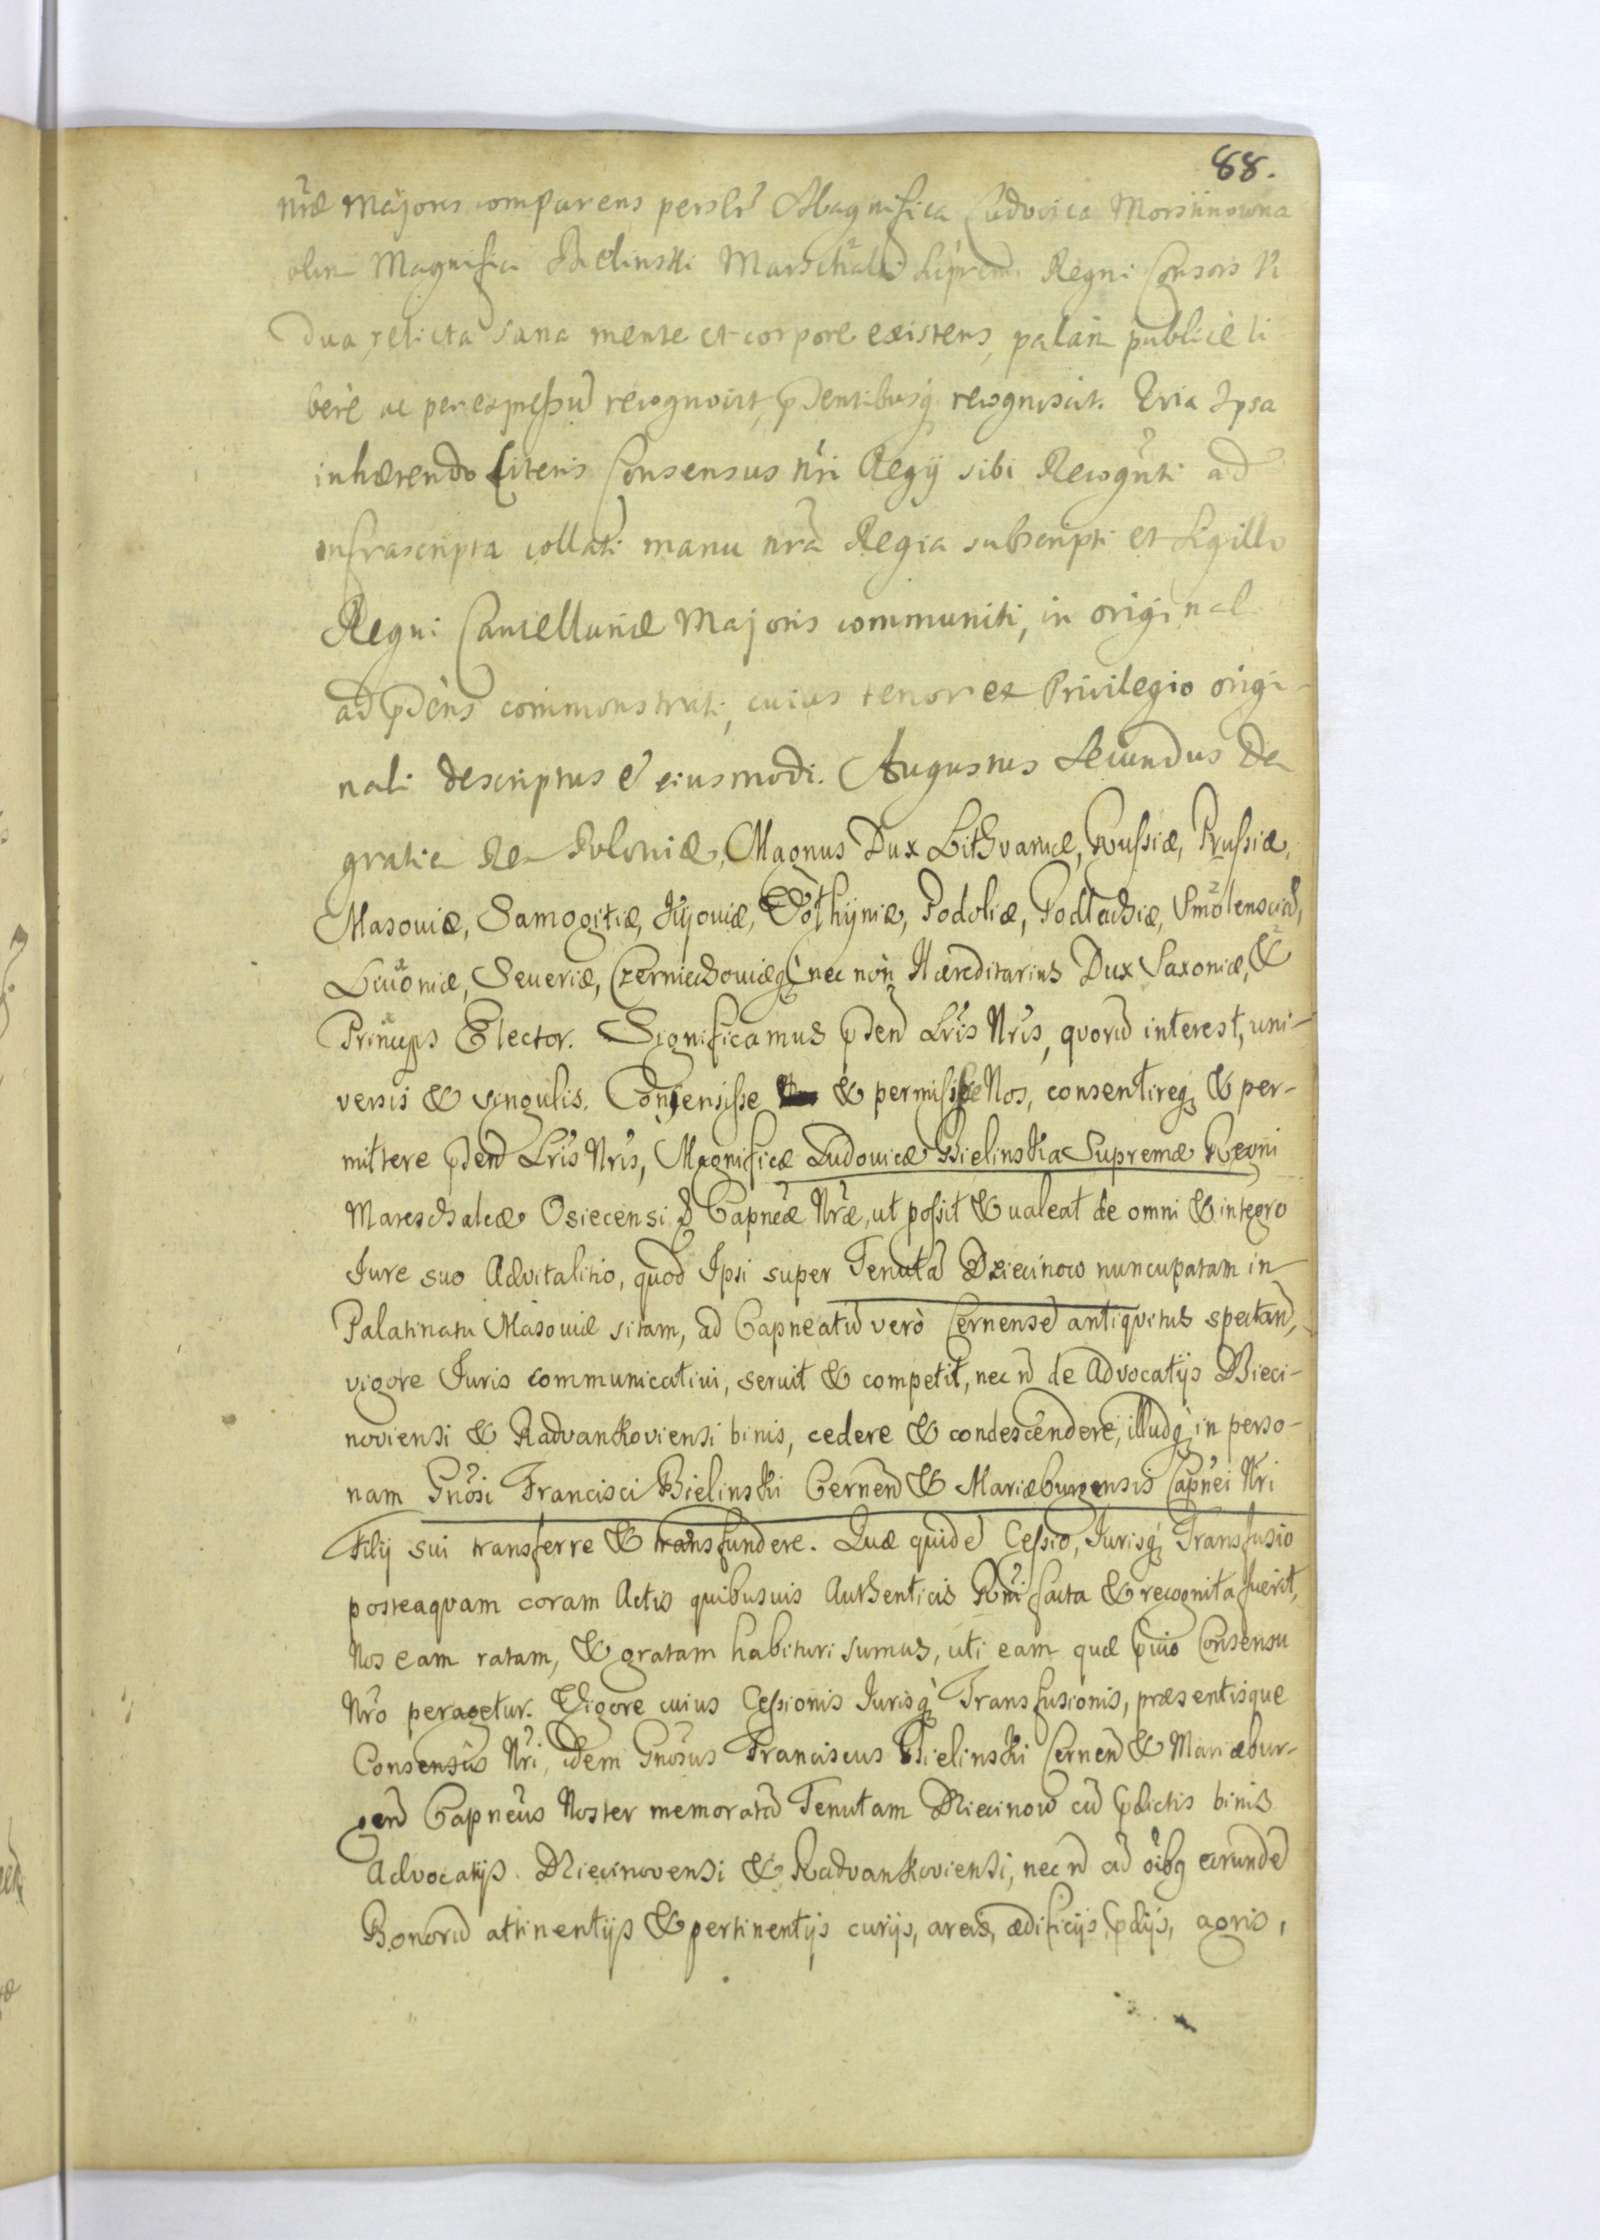 88.
nræ Majoris comparens persłr Magnifica Ludovica Morsztinowna
olim Magnifici Bielinski Marschalci Supremi Regni Consors Vi
dua relicta sana mente et corpore existens, palàm publicè li
berè ac per expressũ recognovit, pñtibusq̃ recognoscit. Quia Ipsa
inhærendo Literis Consensus Nri Regij sibi Recogñti ad
infrascripta collati manu nrã Regia subscripti et Sigillo
Regni Cancellariæ Majoris communiti, in original
ad pdens commonstrati, cuius tenor ex Privilegio origi-
nali descriptus ẽ eiusmodi. Augustus Secundus Dei
gratia Rex Poloniæ, Magnus Dux Lithvaniæ, Russiæ, Prussiæ,
Masoviæ, Samogitiæ, Kijoviæ, Volhijniæ, Podoliæ, Podlachiæ, Smolensciæ,
Livoniæ, Severiæ, Czerniechoviæq̃ nec non Hæreditarius Dux Saxoniæ, &
Princeps Elector. Significamus pden Lris Nris, quorũ interest, uni-
versis & singulis. Consensisse & permisisse Nos, consentireq̃ & per-
mittere pden Lris Nris, Magnificæ Ludovicæ Bielinska Supremæ Regni
Mareschalcæ Osiecensi Capneæ Nræ, ut possit & valeat de omni & integro
Jure suo Advitalitio, quod Ipsi super Tenutã Dziecinow nuncupatam in
Palatinatu Masoviæ sitam, ad Capneatũ verò Cernensẽ antiquitus spectan,
vigore Juris communicativi, servit & competit, nec ñ de Advocatijs Dzieci-
noviensi & Radvankoviensi binis, cedere & condescendere, illudq̃ in perso-
nam Gnosi Francisci Bielinski Cernen & Mariæburgensis Capnei Nri
Filij sui transferre & transfundere. Quæ quidẽ Cessio, Jurisq̃ Transfusio
posteaquam coram Actis quibusvis Authenticis Rni facta & recognita fuerit,
Nos eam ratam, & gratam habituri sumus, uti eam quæ pvio Consensu
Nro peragetur. Vigore cuius Cessionis Jurisq̃ Transfusionis, præsentisque
Consensûs Nri, idem Gnosus Franciscus Bielinski Cernen & Mariæbur-
gen Capneus Noster memoratã Tenutam Dziecinow cũ pdictis binis
Advocatijs Dziecinovensi & Radvankoviensi, nec ñ cũ oibq̃ earundẽ
Bonorũ attinentijs & pertinentijs curijs, areis, ædificijs, pdijs, agris,